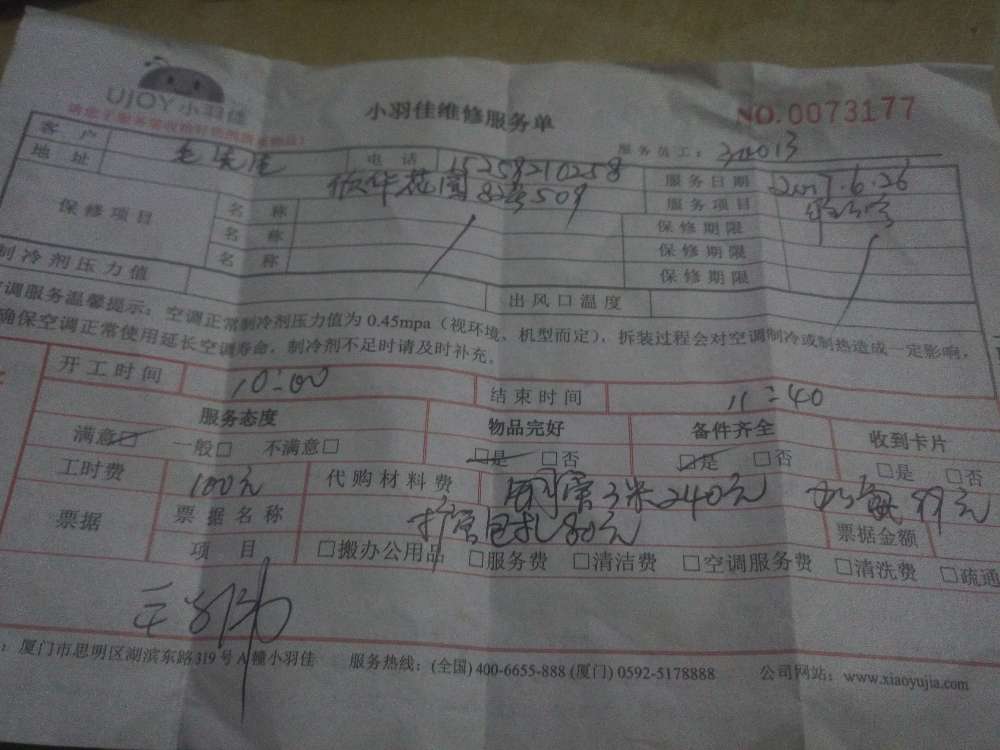 UJOY 小羽佳
小羽佳维修服务单
NO. 0073177
服务员工:
客户 电话 15258210258 服务日期 2017.6.26
地址 花园 509 服务项目
保修项目 名称 保修期限
名称 保修期限
名称 保修期限
制冷剂压力值 出风口温度
空调服务温馨提示:空调正常制冷剂压力值为0.45mpa(视环境、机型而定),拆装过程会对空调制冷或制热造成一定影响,
确保空调正常使用延长空调寿命,制冷剂不足时请及时补充。
开工时间 10:00 结束时间 11:40
服务态度 物品完好 备件齐全 收到卡片
满意□ 一般□ 不满意□ □是 □否 □是 □否 □是 □否
工时费 100元 代购材料费 铜管3米240元 加氟99元
票据 票据名称 扩管包扎80元 票据金额
项目 □搬办公用品 □服务费 □清洁费 □空调服务费 □清洗费 □疏通
:厦门市思明区湖滨东路319号A幢小羽佳 服务热线:(全国) 400-6655-888 (厦门) 0592-5178888 公司网站:www.xiaoyujia.com